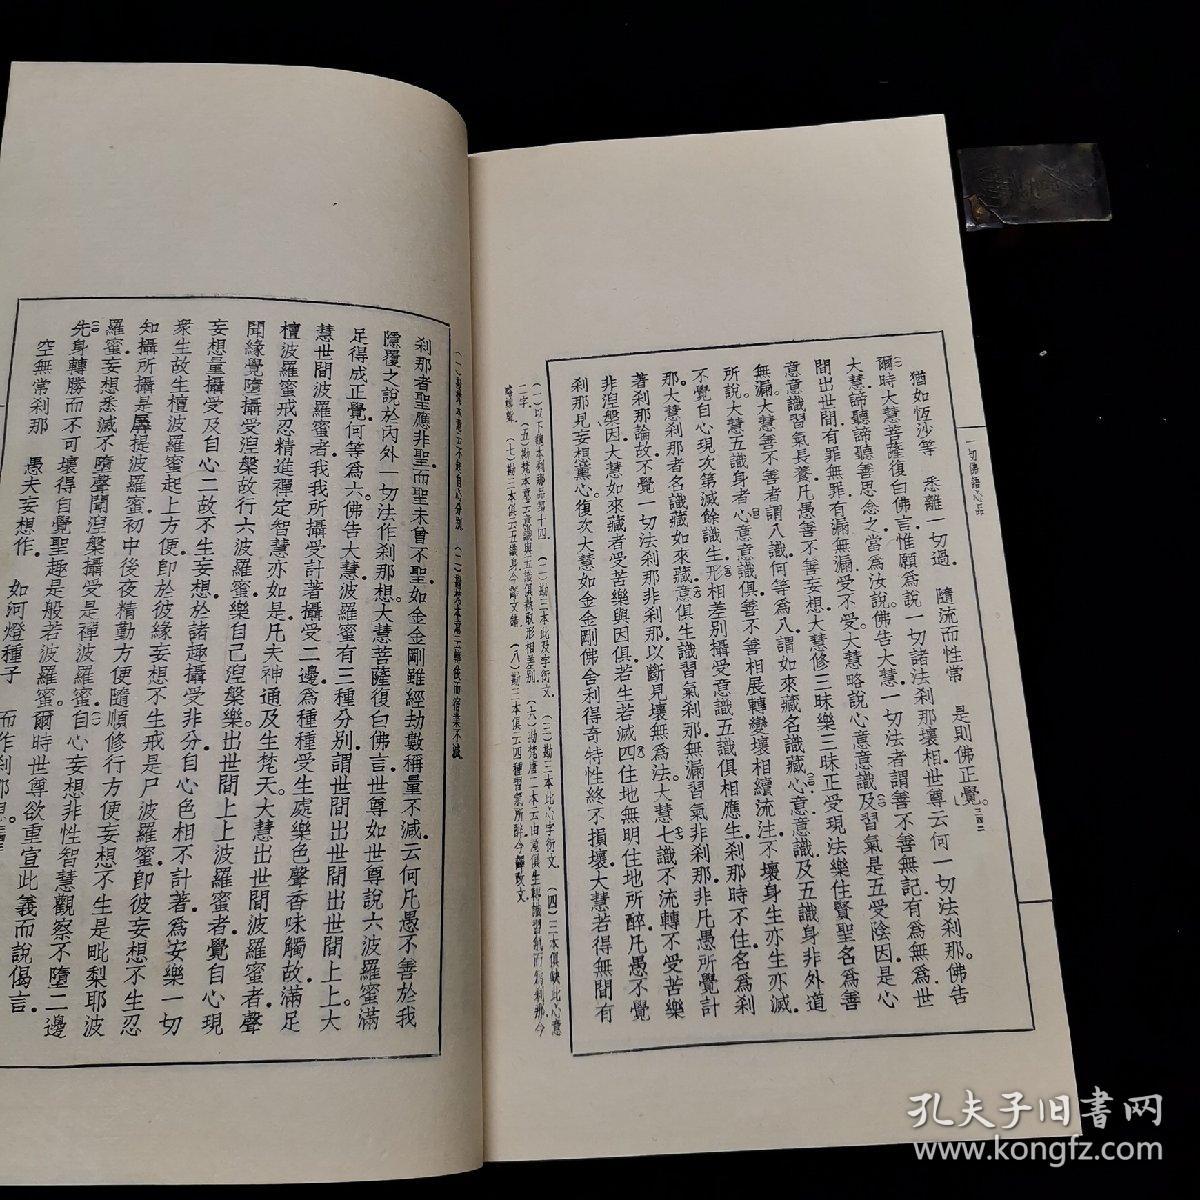 一切佛語心品
猶如恆沙等 悉離一切過 隨流而性常 是則佛正覺
爾時大慧菩薩復白佛言惟願為說一切諸法刹那壞相世尊云何一切法刹那佛告
大慧諦聽諦聽善思念之當為汝說佛告大慧一切法者謂善不善無記有為無為世
間出世間有罪無罪有漏無漏受不受大慧略說心意意識及習氣是五受陰因是心
意意識習氣長養凡愚善不善妄想大慧修三昧樂三昧正受現法樂住賢聖名為善
無漏大慧善不善者謂八識何等為八謂如來藏名識藏心意意識及五識身非外道
所說大慧五識身者心意意識俱善不善相展轉變壞相續流注不壞身生亦生亦滅
不覺自心現次第滅餘識生形相差別攝受意識五識俱相應生刹那時不住名為刹
那大慧刹那者名識藏如來藏意俱生識習氣刹那無漏習氣非刹那非凡愚所覺計
著刹那論故不覺一切法刹那非刹那以斷見壞無為法大慧七識不流轉不受苦樂
非涅槃因大慧如來藏者受苦樂與因俱若生若滅四住地無明住地所醉凡愚不覺
刹那見妄想熏心復次大慧如金金剛佛舍利得奇特性終不損壞大慧若得無間有
刹那者聖應非聖而聖未曾不聖如金金剛雖經劫數稱量不減云何凡愚不善於我
隱覆之說於內外一切法作刹那想大慧菩薩復白佛言世尊如世尊說六波羅蜜滿
足得成正覺何等為六佛告大慧波羅蜜有三種分別謂世間出世間出世間上上大
慧世間波羅蜜者我我所攝受計著攝受二邊為種種受生處樂色聲香味觸故滿足
檀波羅蜜戒忍精進禪定智慧亦如是凡夫神通及生梵天大慧出世間波羅蜜者聲
聞緣覺墮攝受涅槃故行六波羅蜜樂自己涅槃樂出世間上上波羅蜜者覺自心現
妄想量攝受及自心二故不生妄想於諸趣攝受非分自心色相不計著為安樂一切
眾生故生檀波羅蜜起上方便即於彼緣妄想不生戒是尸波羅蜜即彼妄想不生忍
知攝所攝是羼提波羅蜜初中後夜精勤方便隨順修行方便妄想不生是毗梨耶波
羅蜜妄想悉滅不墮聲聞涅槃攝受是禪波羅蜜自心妄想非性智慧觀察不墮二邊
先身轉勝而不可壞得自覺聖趣是般若波羅蜜爾時世尊欲重宣此義而說偈言
空無常刹那 愚夫妄想作 如河燈種子 而作刹那想
孔夫子旧書网
www.kongfz.com